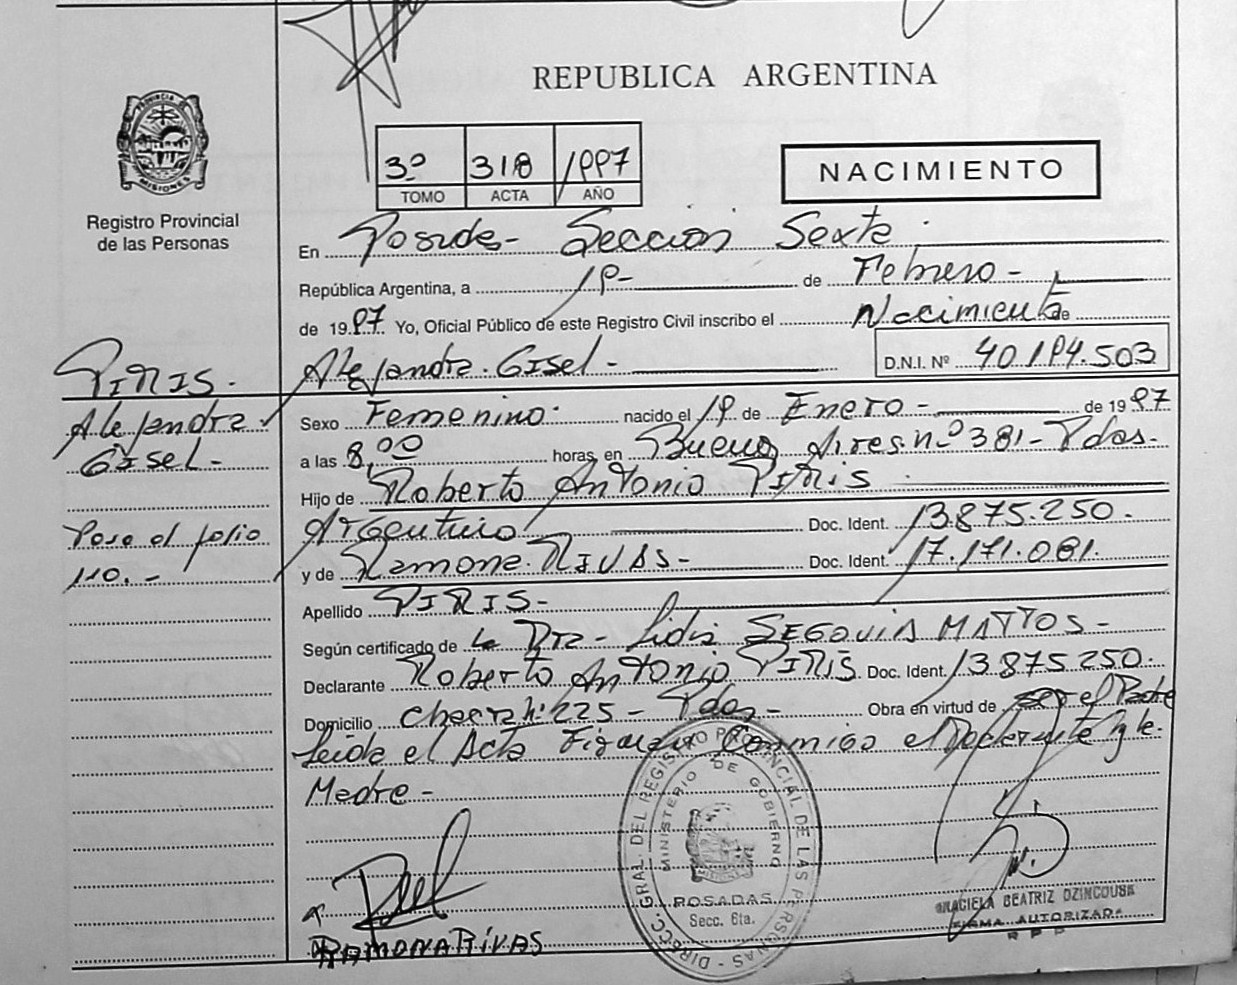 REPUBLICA ARGENTINA
PROVINCIA DE MISIONES
Registro Provincial
de las Personas
3º 318 1997
TOMO ACTA AÑO
NACIMIENTO
En Posadas - Sección Sexta
República Argentina, a 19 - de Febrero -
de 1997 Yo, Oficial Público de este Registro Civil inscribo el Nacimiento de
Alejandra Gisel - D.N.I. Nº 40.194.503
PIRIS.
Alejandra
Gisel -
Pasa al folio
110. -
Sexo Femenino nacido el 19 de Enero - de 1997
a las 8,00 horas, en Buenos Aires nº 381 - Pdas.
Hijo de Roberto Antonio PIRIS
Argentino Doc. Ident. 13.875.250.
y de Ramona RIVAS - Doc. Ident. 17.171.081.
Apellido PIRIS -
Según certificado de la Dra - Lidia SEGOVIA MATTOS -
Declarante Roberto Antonio PIRIS Doc. Ident. 13.875.250.
Domicilio Chacra Nº 225 - Pdas - Obra en virtud de ser el Padre
Leída el Acta Firman Conmigo el Declarante y la
Madre -
DIRECC. GRAL. DEL REGISTRO PROVINCIAL DE LAS PERSONAS -
MINISTERIO DE GOBIERNO
POSADAS
Secc. 6ta.
RAMONA RIVAS
GRACIELA BEATRIZ DZINCOUSK
FIRMA AUTORIZADA
R P P